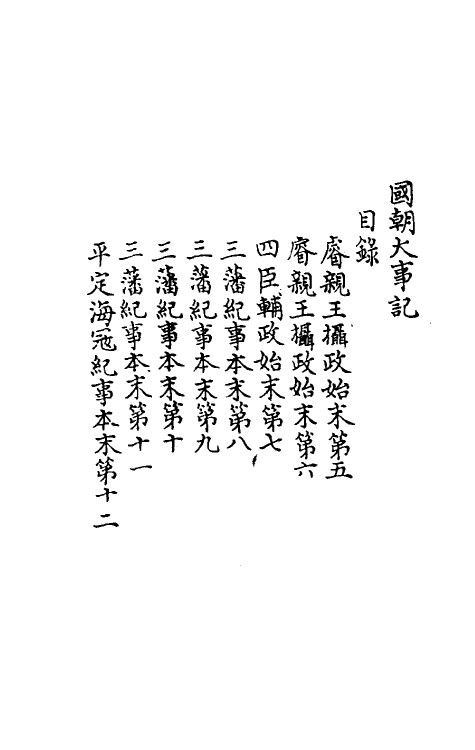 國朝大事記
目錄
睿親王攝政始末第五
睿親王攝政始末第六
四臣輔政始末第七
三藩紀事本末第八
三藩紀事本末第九
三藩紀事本末第十
三藩紀事本末第十一
平定海寇紀事本末第十二